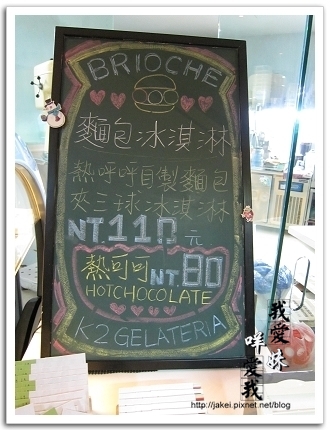 BRIOCHE
麵包冰淇淋
熱呼呼自製麵包
夾三球冰淇淋
NT.110元
熱可可NT.80
HOTCHOCOLATE
K2 GELATERIA
我愛妹
咩愛我
http://jakei.pixnet.net/blog